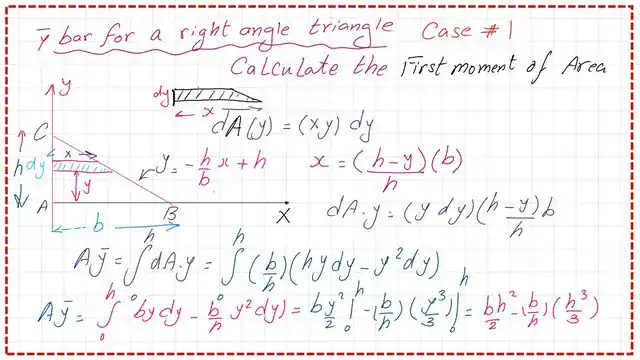 ȳ bar for a right angle triangle Case #1
Calculate the First moment of Area
y
dy
x
dA(y) = (xy) dy
C
x
h
dy
y
y = -h/b x + h
x = (h-y)/h (b)
A
B
X
b
dA·y = (y dy) (h-y)/h b
Aȳ = ∫₀ʰ dA·y = ∫₀ʰ (b/h)(hy dy - y² dy)
Aȳ = ∫₀ʰ by dy - b/h y² dy) = by²/2 |₀ʰ - (b/h)(y³/3)|₀ʰ = bh²/2 - (b/h)(h³/3)